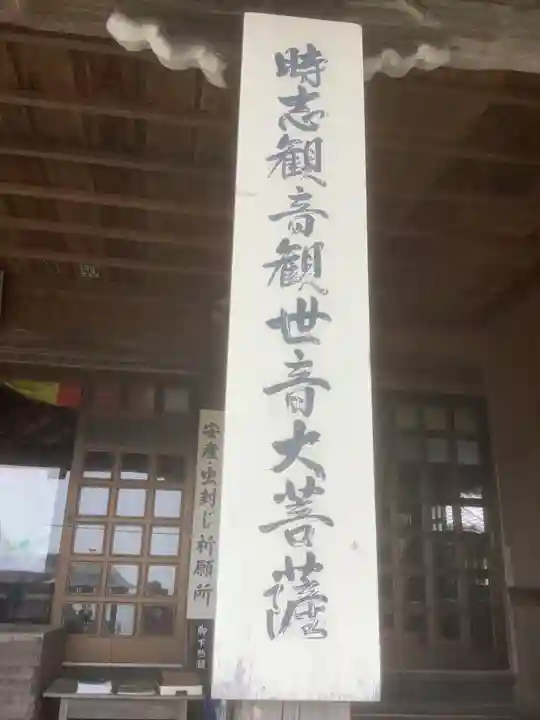 時志観音観世音大菩薩
安産・虫封じ祈願所